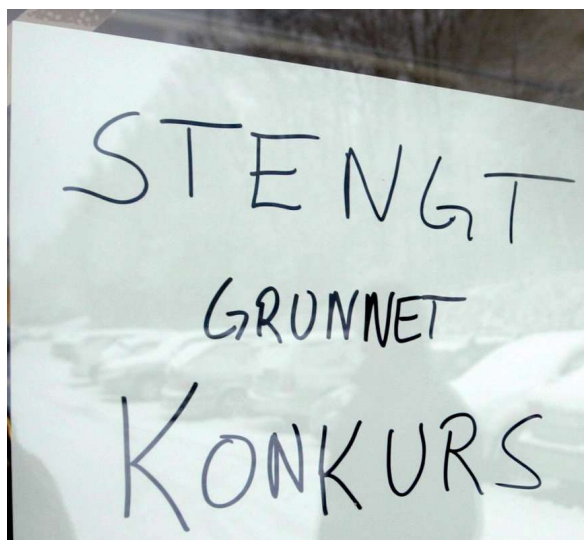 STENGT
GRUNNET
KONKURS